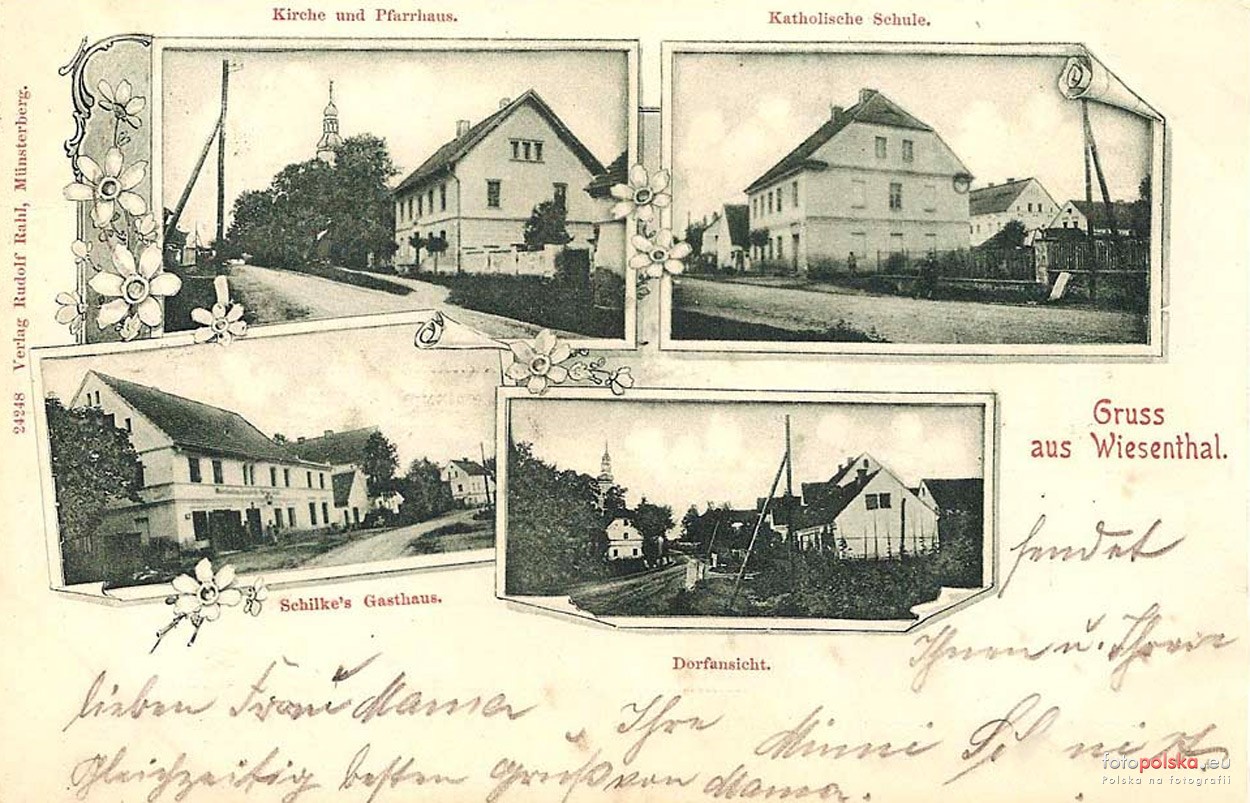 Kirche und Pfarrhaus.
Katholische Schule.
24248 Verlag Rudolf Rahl, Münsterberg.
Gruss
aus Wiesenthal.
Schilke's Gasthaus.
Dorfansicht.
sendet
Ihnen u. Ihrer
lieben Frau Mama
Ihre Minni
Gleichzeitig besten Gruß von Mama.
fotopolska.eu
Polska na fotografii